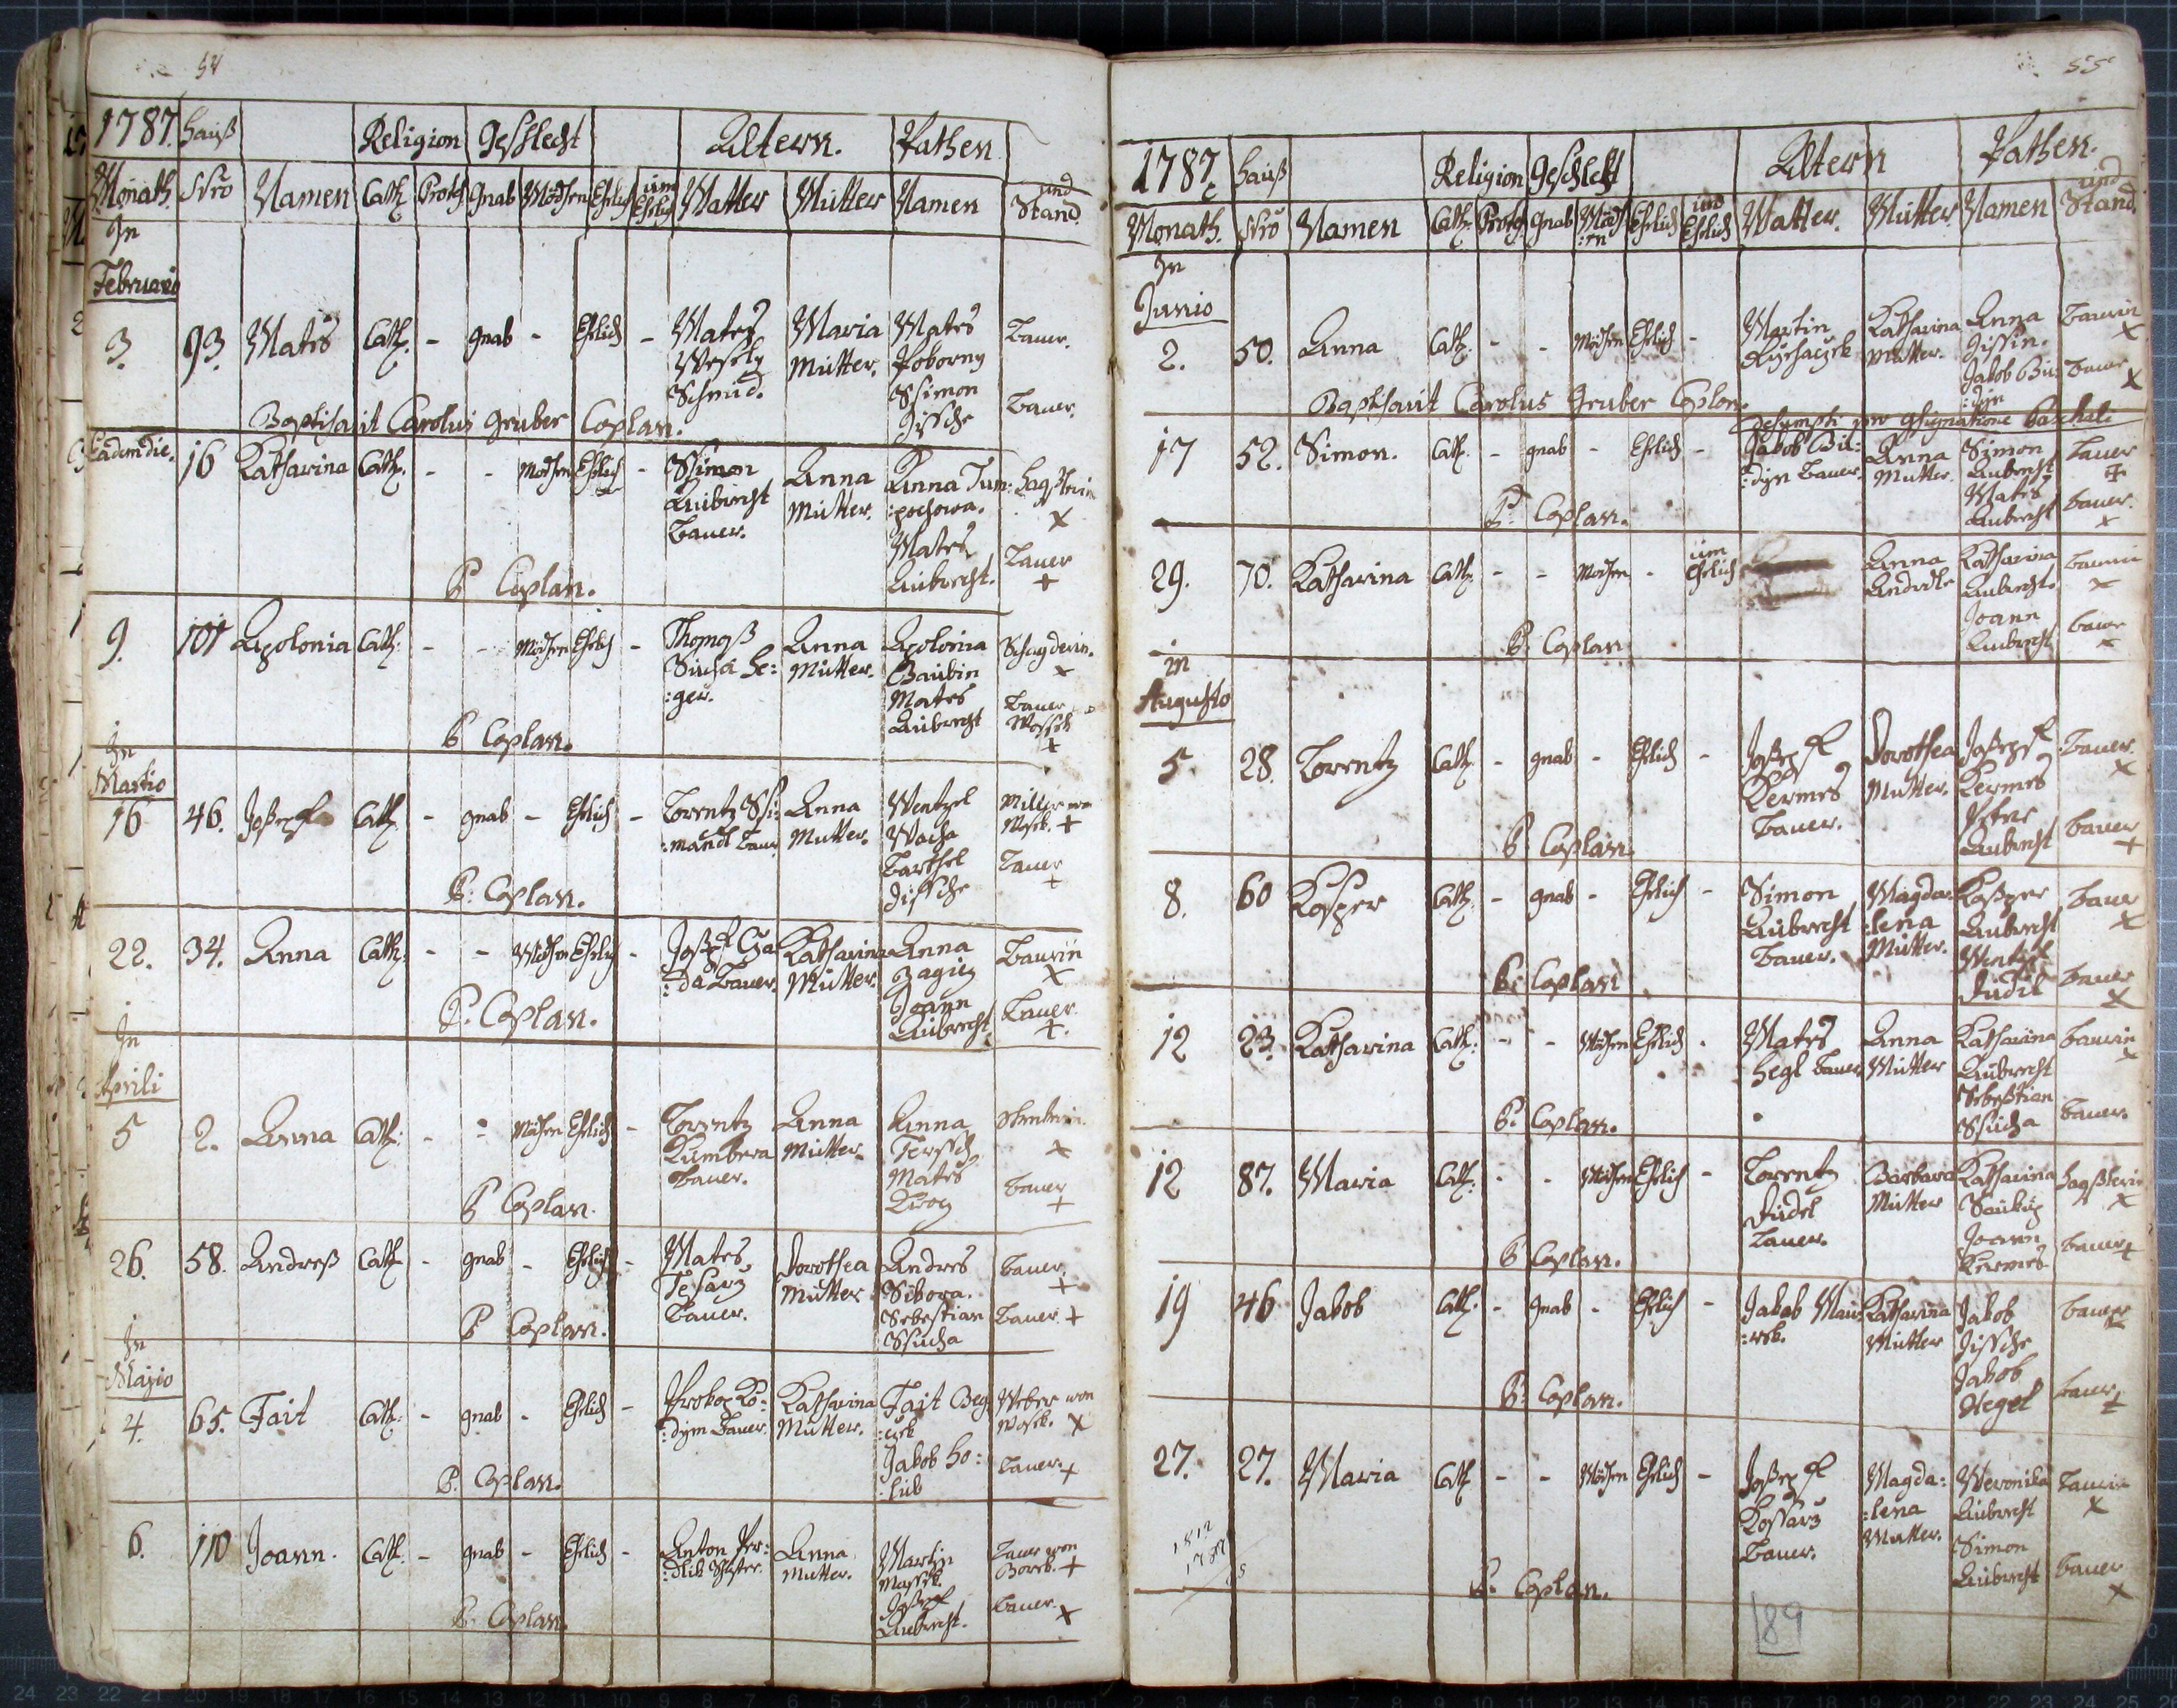 54
1787. Hauß Religion Geschlecht Ältern. Pathen
Monath. Nro Namen Cath. Prote Gnab Mädchen Ehrlich um Ehrlich Vatter Mutter Namen und Stand.
In
Februario
3. 93. Mates Cath. - gnab - Ehrlich - Mates Vesely Schmid. Maria Mutter. Mates Pokorny Bauer.
Ssimon Jissche Bauer.
Baptisavit Carolus Gruber Coplan.
Eadem die. 16 Katharina Cath. - - Mädchen Ehrlich - Ssimon Aubrecht Bauer. Anna Mutter. Anna
Mates Aubrecht. Bauer +
P Coplan.
9. 101 Apolonia Cath. - - Mädchen Ehrlich - Thomaß Anna Mutter. Apolonia
Mates Aubrecht Bauer
P Coplan.
In
Martio
16 46. Joseph Cath. - gnab - Ehrlich - Lorentz Ssi:mandl Bauer Anna Mutter. Wentzel Vacha Miller +
Barthel Jissche Bauer +
P: Coplan.
22. 34. Anna Cath. - - Mädchen Ehrlich - Joseph Bauer. Katharina Mutter. Anna Bäurin x
Joann Aubrecht. Bauer +.
P. Coplan.
In
Aprili
5 2. Anna Cath. - - Mädchen Ehrlich - Lorentz Kumbera Bauer. Anna Mutter. Anna x
Mates Bauer +
P Coplan.
26. 58. Andreß Cath - gnab - Ehrlich - Mates Tesarz Bauer. Dorothea Mutter Andres Sikora. Bauer. +
Sebestian Ssucha Bauer +
P Coplan.
In
Majio
4. 65. Fait Cath. - gnab - Ehrlich - Prokop Ko:dym Bauer. Katharina Mutter. Fait Weber von x
Jakob Ho:lub Bauer. +
P. Coplan.
6. 110 Joann. Cath. - gnab - Ehrlich - Anton Anna Mutter. Martin Bauer von +
Joseph Aubrecht. Bauer. x
P. Coplan.
55
1787 Hauß Religion Geschlecht Ältern Pathen.
Monath. Nro Namen Cath. Prote. Gnab Mädch:en Ehrlich und Ehrlich Vatter. Mutter. Namen und Stand.
In
Junio
2. 50. Anna Cath. - - Mädchen Ehrlich - Martin Katharina Mutter. Anna Jissin. Bäurin x
Jakob Bauer x
Baptisavit Carolus Gruber Coplan.
Desumpti pro
17 52. Simon. Cath. - gnab - Ehrlich - Jakob Bauer. Anna Mutter. Simon Aubrecht Bauer +
Mates Aubrecht Bauer. x
P. Coplan.
29. 70. Katharina Cath. - - Mädchen - um Ehrlich Anna Katharina Aubrecht. Bäurin x
Joann Aubrecht Bauer x
P. Coplan
in
Augusto
5. 28. Lorentz Cath. - gnab - Ehrlich - Joseph Kermes Bauer. Dorothea Mutter. Joseph Kermes Bauer. x
Peter Aubrecht Bauer +
P. Coplan.
8. 60 Kasper Cath. - gnab - Ehrlich - Simon Aubrecht Bauer. Magda:lena Mutter. Kasper Aubrecht Bauer x
Wentzl Dudl Bauer x
P. Coplan
12 23. Katharina Cath. - - Mädchen Ehrlich - Mates Hegl Bauer. Anna Mutter Katharina Aubrecht Bäurin x
Sebestian Ssucha Bauer.
P. Coplan.
12 87. Maria Cath. - - Mädchen Ehrlich - Lorentz Dudl Bauer. Barbara Mutter Katharina x
Joann Kermes Bauer +
P Coplan.
19 46 Jakob Cath. - gnab - Ehrlich - Jakob Katharina Mutter Jakob Jissche Bauer
Jakob Hegel Bauer +
P. Coplan.
27. 27. Maria Cath - - Mädchen Ehrlich - Joseph Kossarz Bauer. Magda:lena Mutter. Weronika Aubrecht Bäurin x
Simon Aubrecht Bauer x
P. Coplan.
1812
1787
189